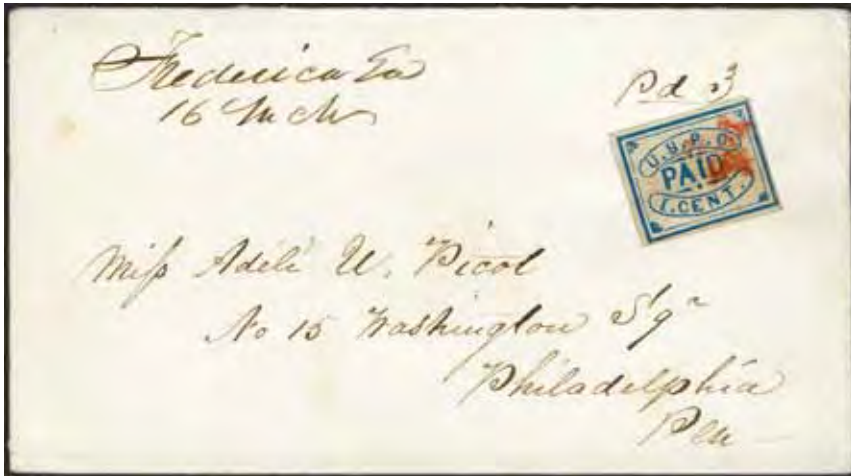 Frederica Ga
16 Mch
Pd 3
U.S.P.O.
PAID
1.CENT.
Miſs Adéle U. Picot
No 15 Washington Sqr
Philadelphia
Pen